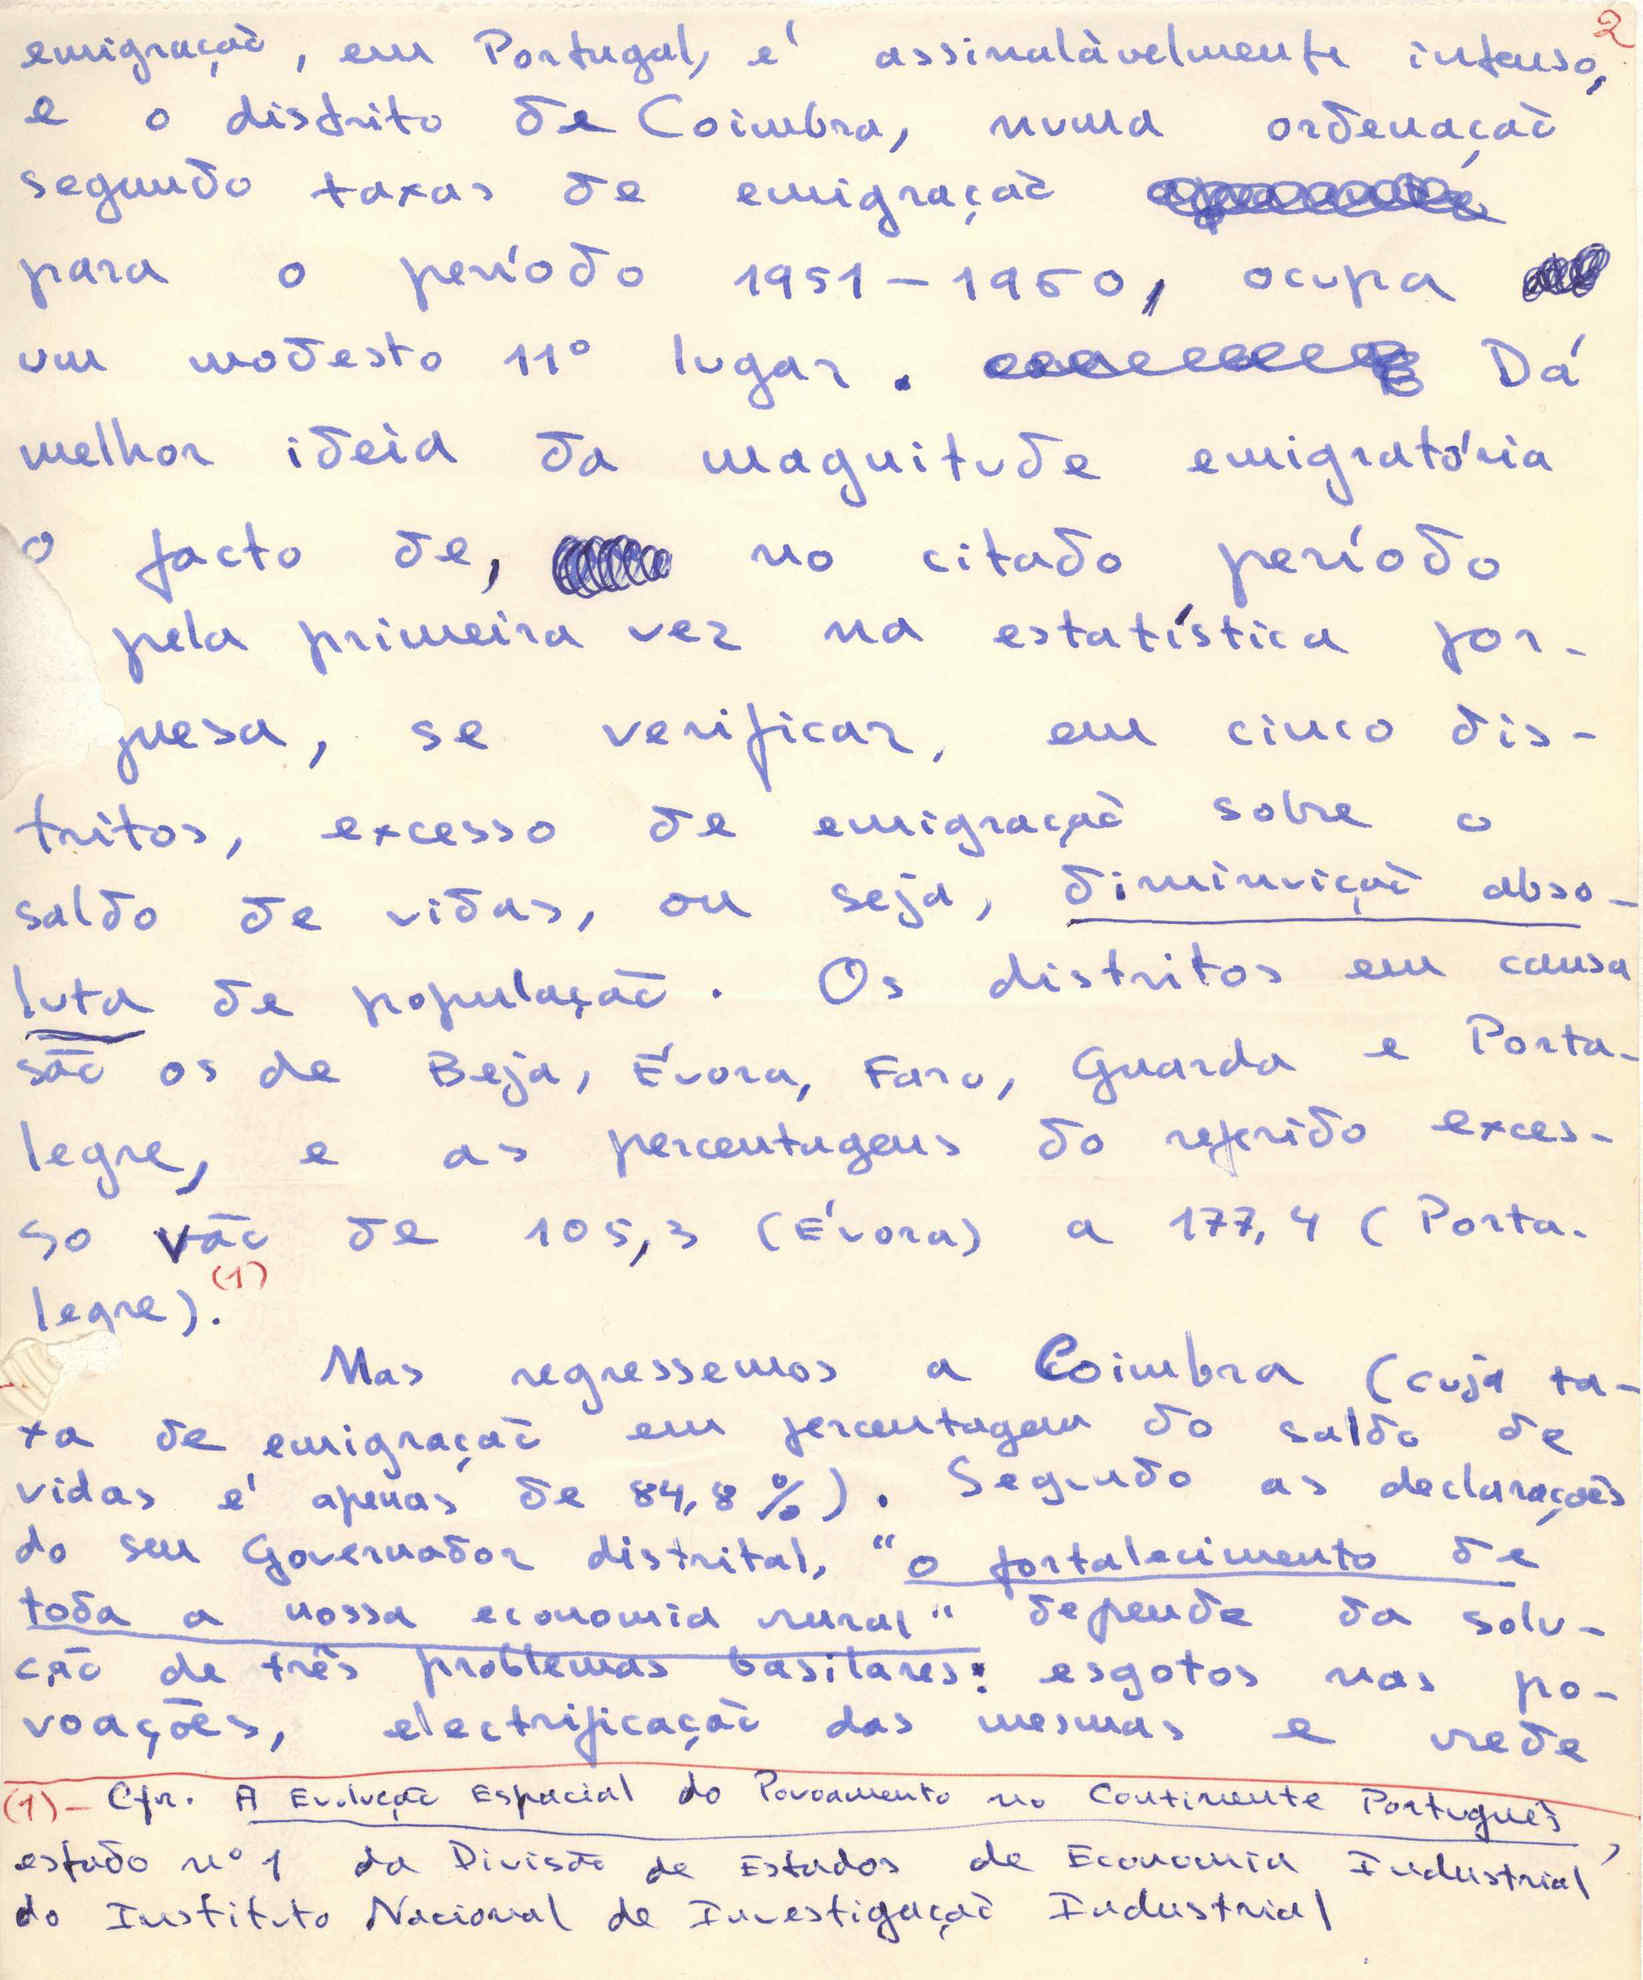 2
emigração, em Portugal, é assinalàvelmente intenso,
e o distrito de Coimbra, numa ordenação
segundo taxas de emigração
para o período 1951-1960, ocupa
um modesto 11º lugar. Dá
melhor ideia da magnitude emigratória
o facto de, no citado período
pela primeira vez na estatística por-
guesa, se verificar, em cinco dis-
tritos, excesso de emigração sobre o
saldo de vidas, ou seja, diminuição abso-
luta de população. Os distritos em causa
são os de Beja, Évora, Faro, Guarda e Porta-
legre, e as percentagens do referido exces-
so vão de 105,3 (Évora) a 177,4 (Porta-
legre).(1)
Mas regressemos a Coimbra (cuja ta-
xa de emigração em percentagem do saldo de
vidas é apenas de 84,8%). Segundo as declarações
do seu Governador distrital, "o fortalecimento de
toda a nossa economia rural" depende da solu-
ção de três problemas basilares: esgotos nas po-
voações, electrificação das mesmas e rede
(1)- Cfr. A Evolução Espacial do Povoamento no Continente Português,
estudo nº 1 da Divisão de Estudos de Economia Industrial
do Instituto Nacional de Investigação Industrial